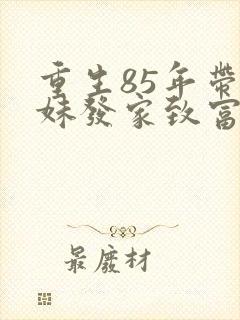 重生85年帶
妹發家致富
最廢材